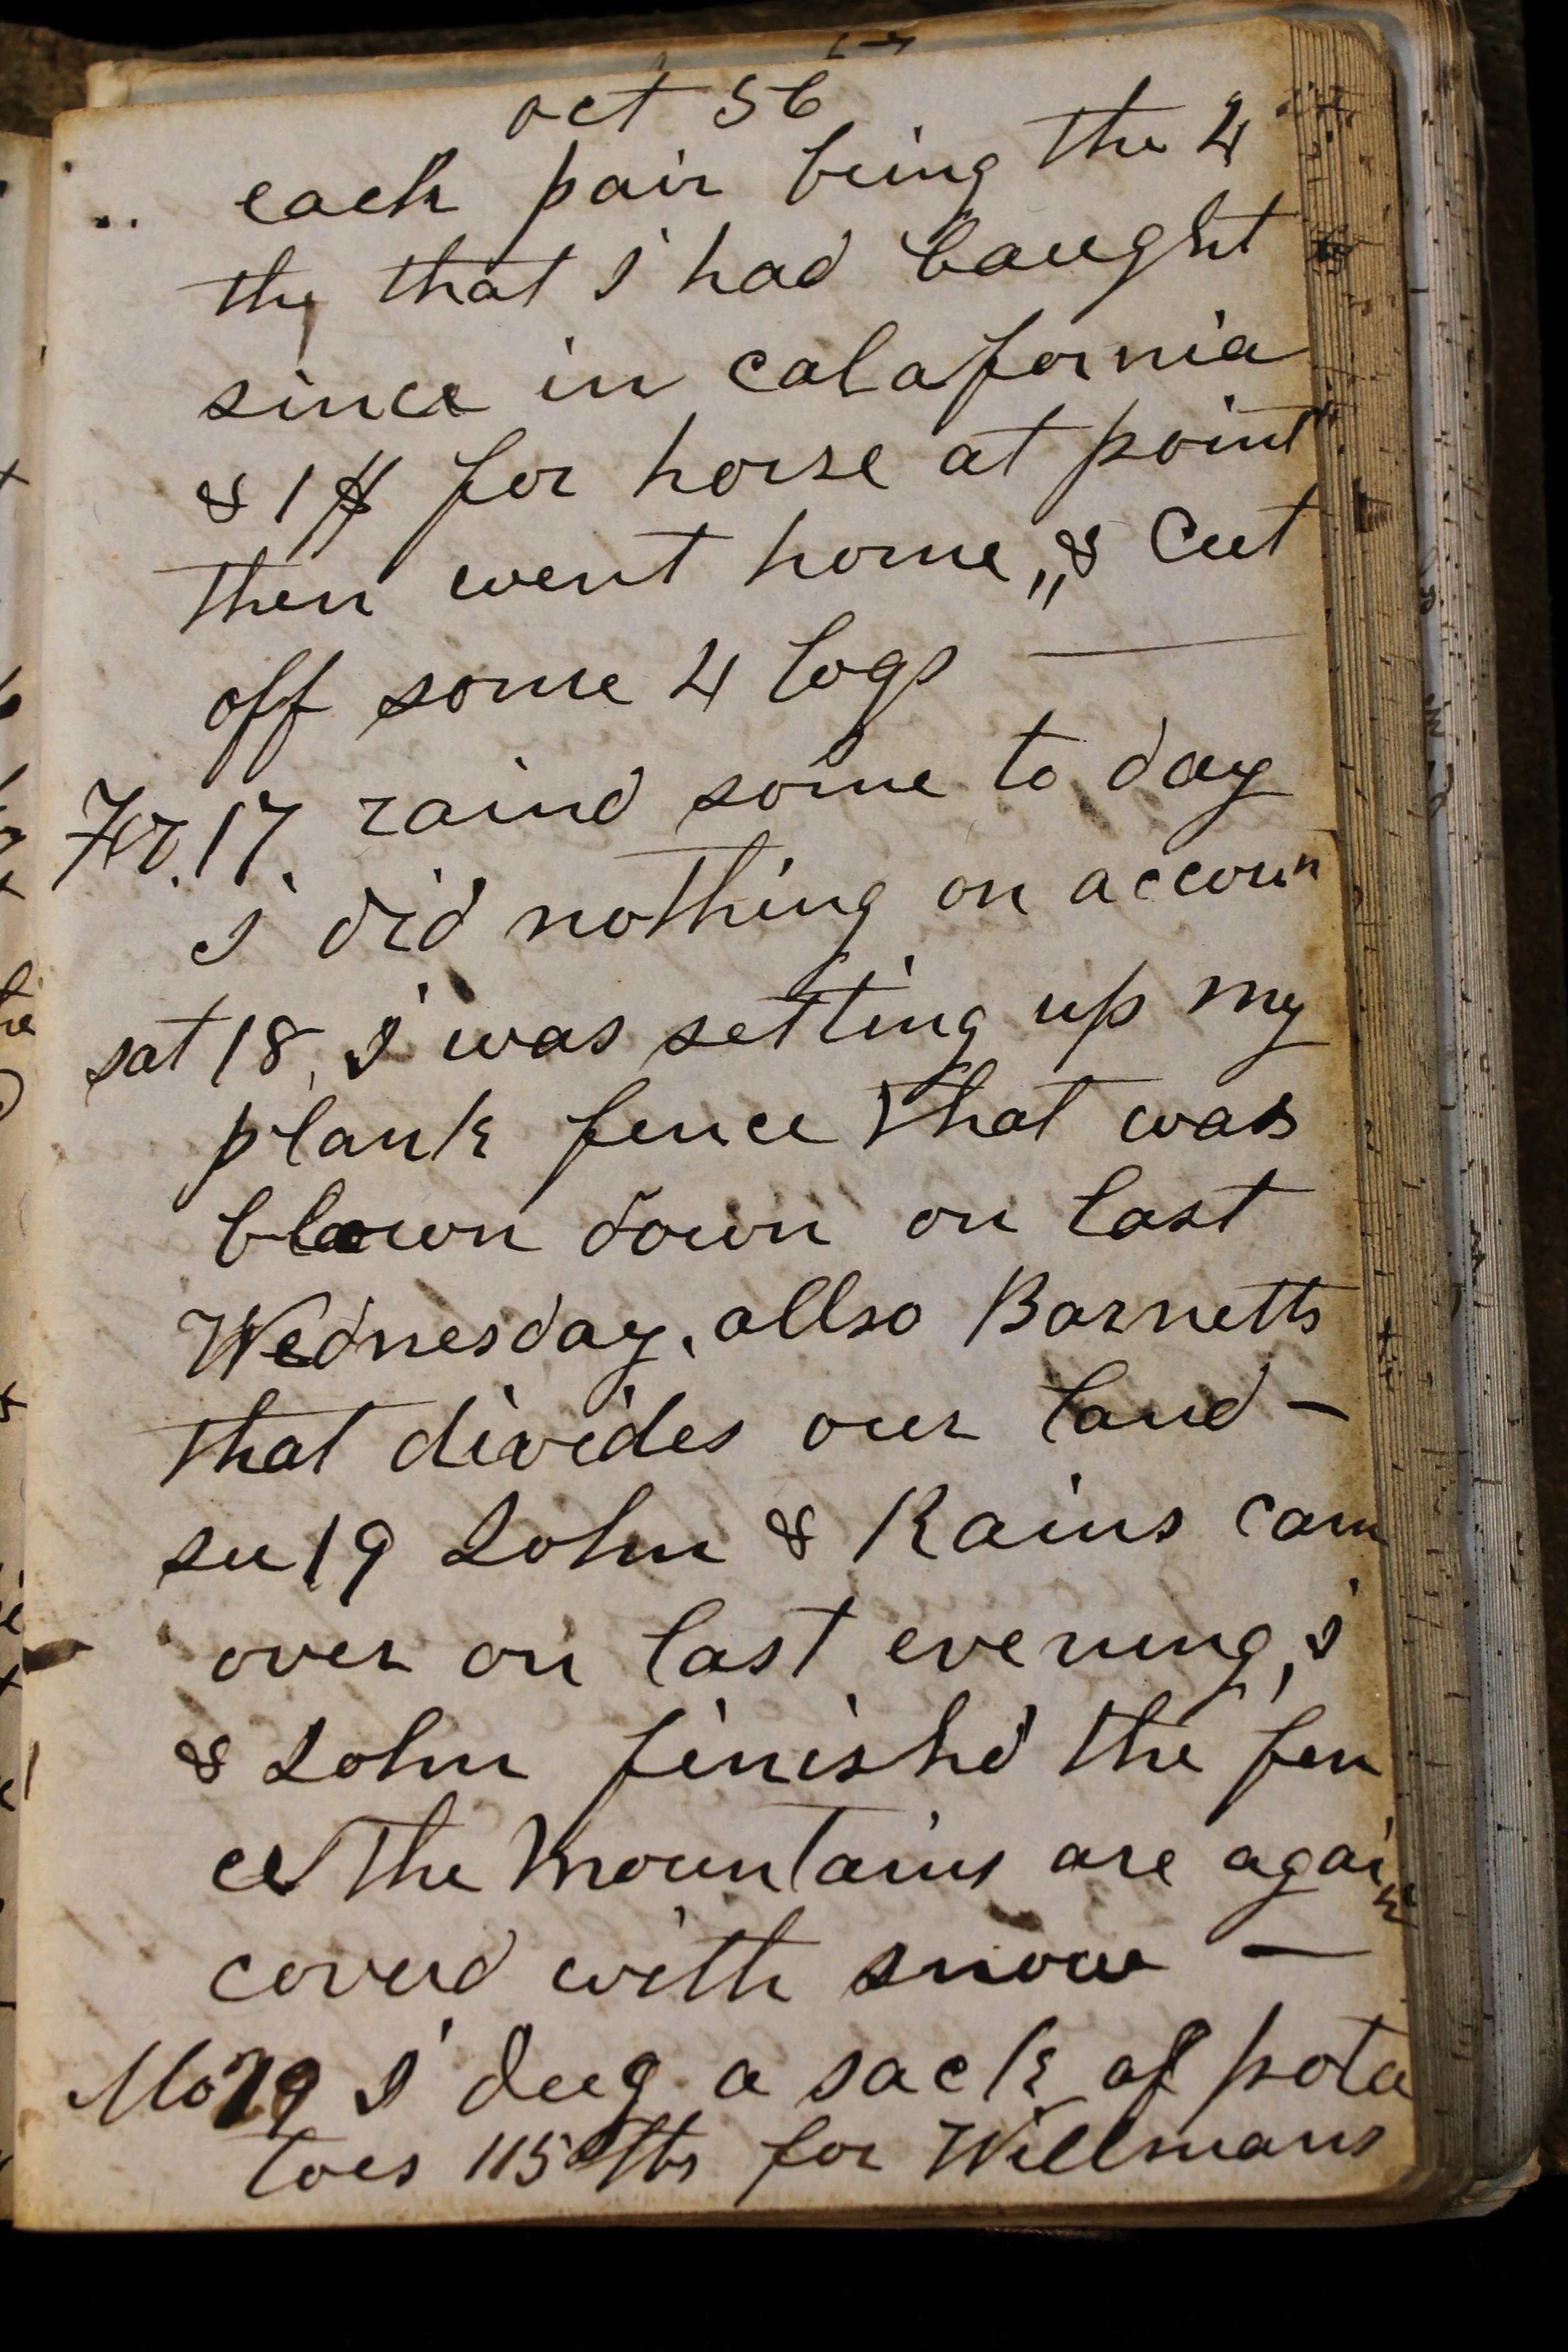 oct 56
each pair being the 4
thy that I had baught
since in calafornia
& 1 $ for horse at point
then went home,, & Cut
off some 4 logs —
Fr. 17. raind some to day
I did nothing on accoun
sat 18, I was setting up my
plank fence that was
blown down on last
Wednesday, allso Barnetts
that divides our land —
su 19 John & Rains cam
over on last evening, I
& John finishd the fen
ce The Mountains are again
coverd with snow —
Mo 19 I dug a sack of pota
toes 115 lbs for Willmans